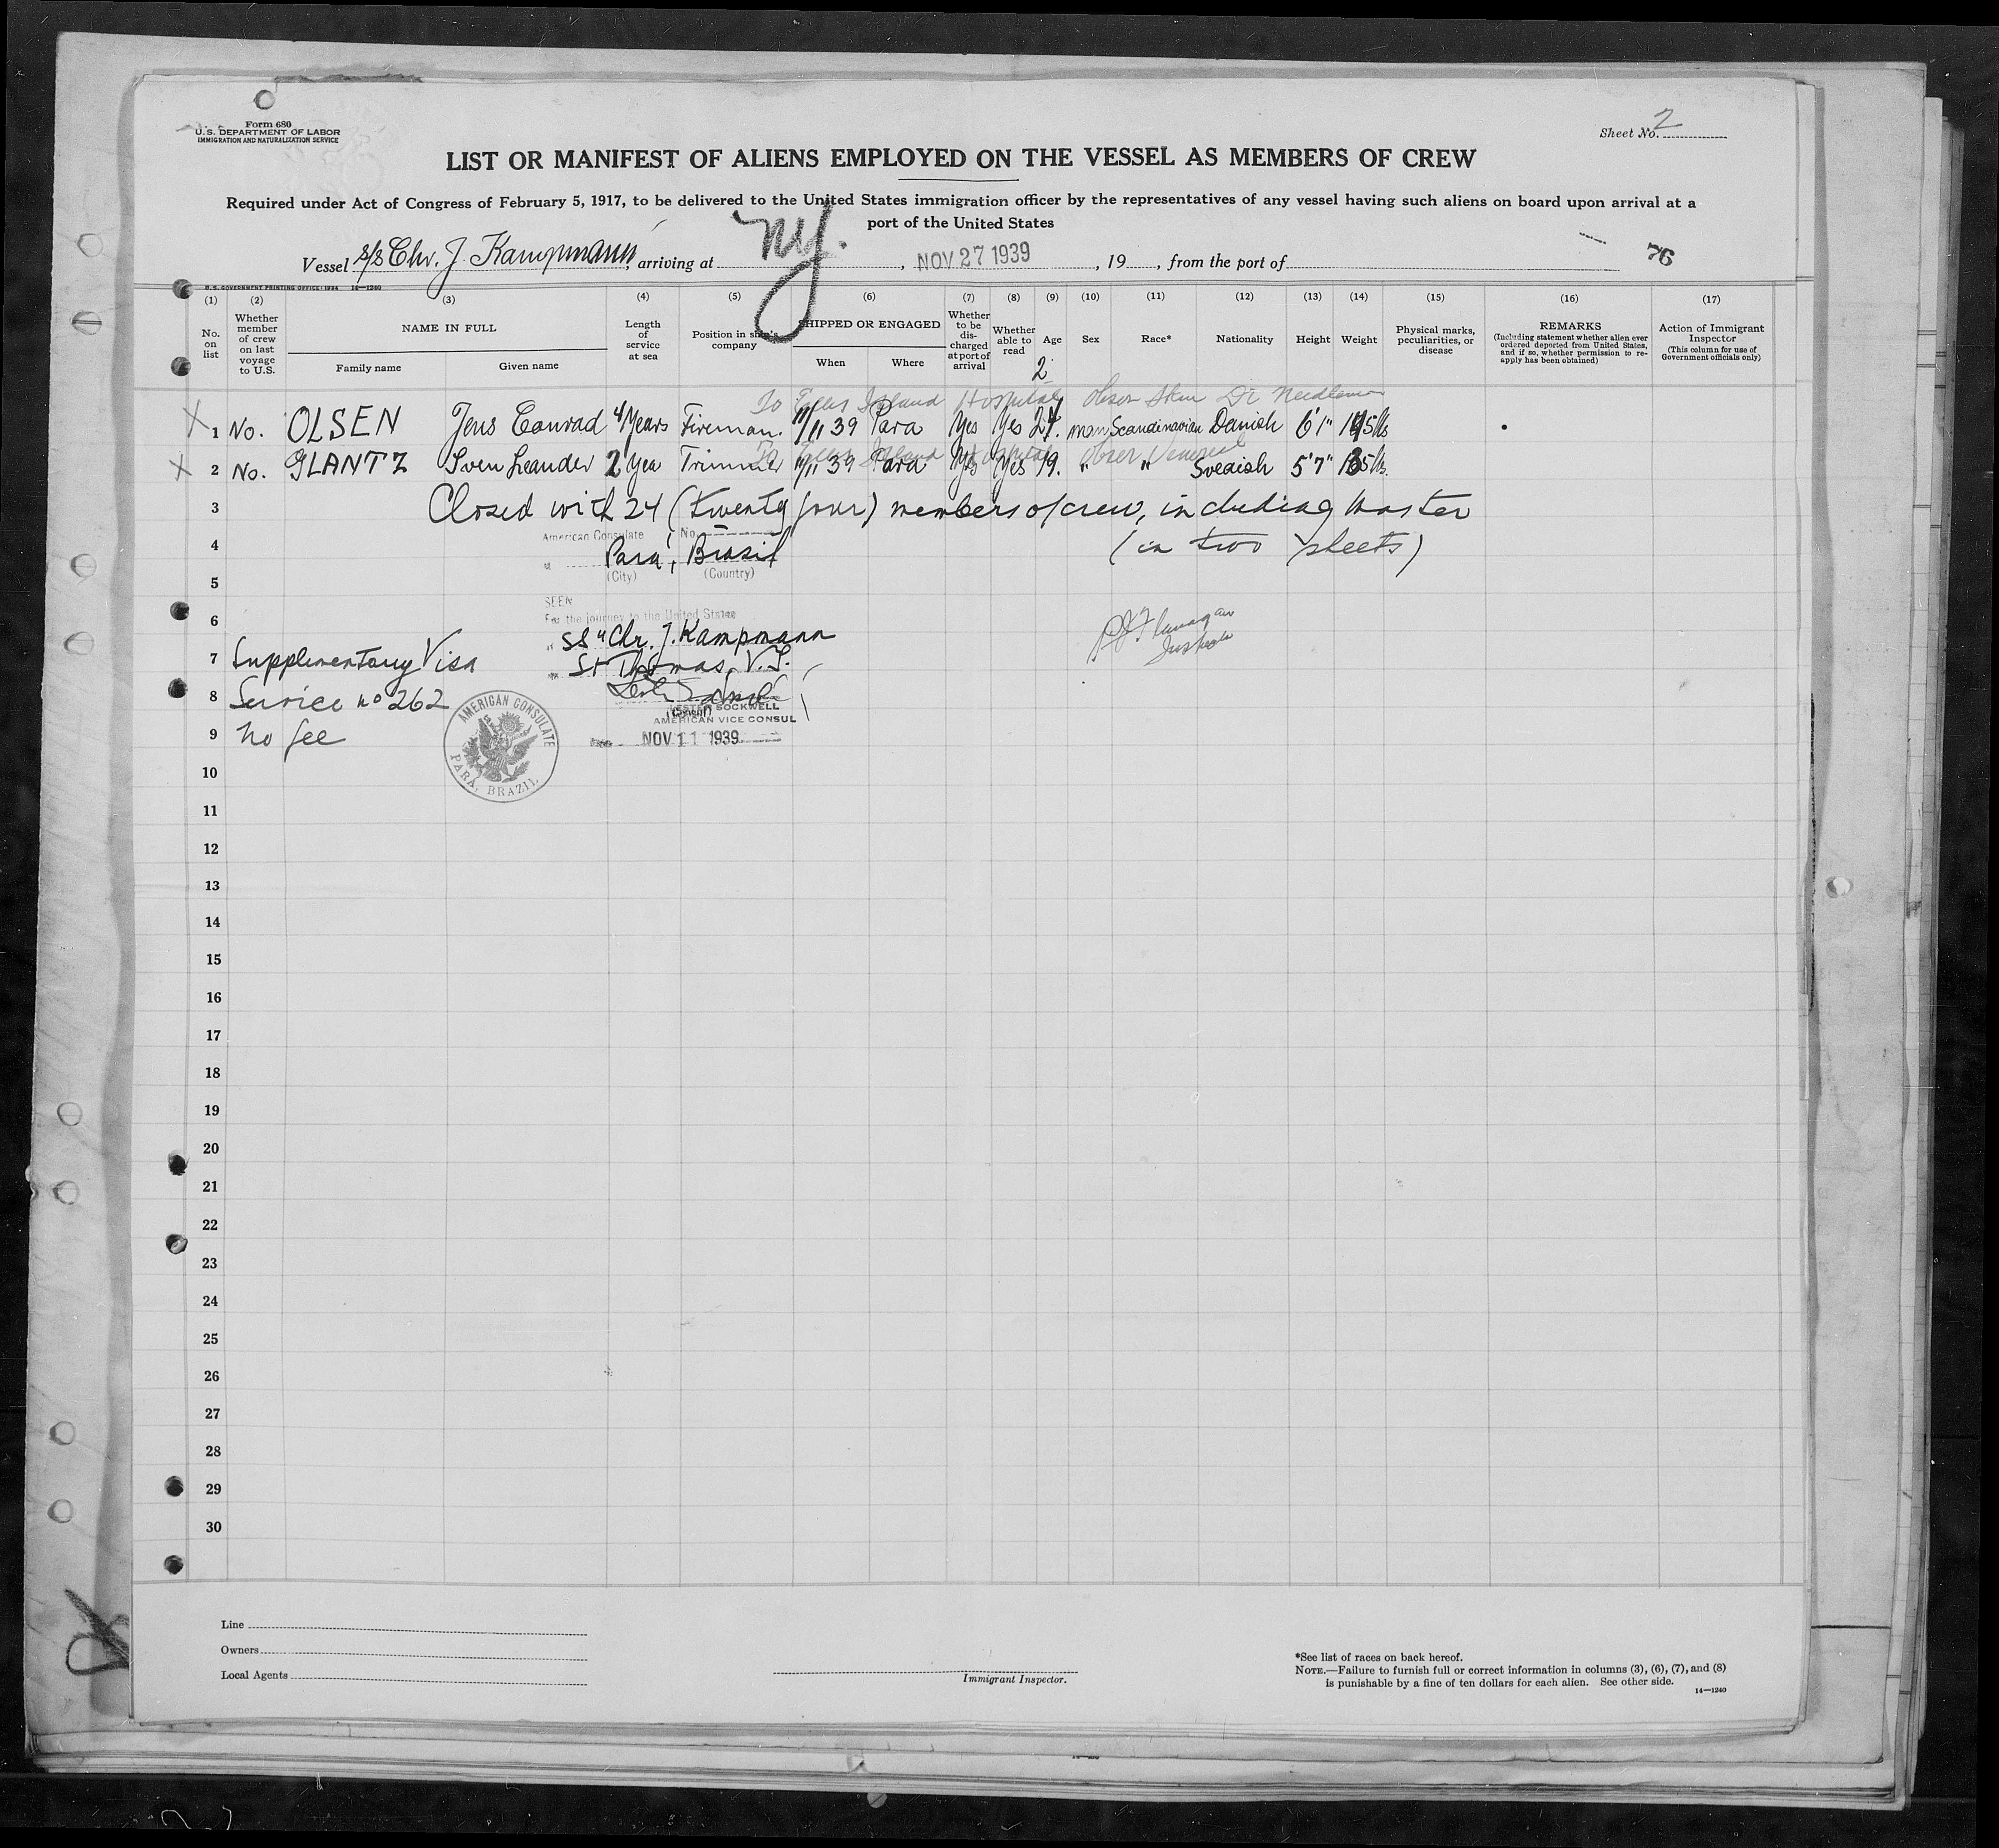 Form 680
U. S. DEPARTMENT OF LABOR
IMMIGRATION AND NATURALIZATION SERVICE
Sheet No. 2
LIST OR MANIFEST OF ALIENS EMPLOYED ON THE VESSEL AS MEMBERS OF CREW
Required under Act of Congress of February 5, 1917, to be delivered to the United States immigration officer by the representatives of any vessel having such aliens on board upon arrival at a
port of the United States
Vessel s/s Chr. J. Kampmann, arriving at NY., NOV 27 1939, 19, from the port of
76
U. S. GOVERNMENT PRINTING OFFICE: 1934 14—1240
(1) (2) (3) (4) (5) (6) (7) (8) (9) (10) (11) (12) (13) (14) (15) (16) (17)
No. on list
Whether member of crew on last voyage to U.S.
NAME IN FULL
Family name Given name
Length of service at sea
Position in ship's company
SHIPPED OR ENGAGED
When Where
Whether to be discharged at port of arrival
Whether able to read
Age
Sex
Race*
Nationality
Height
Weight
Physical marks, peculiarities, or disease
REMARKS
(Including statement whether alien ever ordered deported from United States, and if so, whether permission to reapply has been obtained)
Action of Immigrant Inspector
(This column for use of Government officials only)
2
To Ellis Island Hospital Obser Skin Dr Needleman
X 1 No. OLSEN Jens Conrad 4 Years Fireman. 11/11 39 Para Yes Yes 24. man Scandinavian Danish 6'1"
To Ellis Island Hospital Obser Venereal
X 2 No. GLANTZ Sven Leander 2 Yea Trimmer 11/11 39 Para Yes Yes 19. " " Svedish 5'7"
3 Closed with 24 (twenty four) members of crew, including master
American Consulate No.
4 Para, Brasil (in two sheets)
(City) (Country)
5
SEEN
For the journey to the United States
6
SS "Chr. J. Kampmann
7 Supplementary Visa St Thomas, V.I.
8 Service no 262
LESTER SOCKWELL
AMERICAN VICE CONSUL
9 No fee
NOV 11 1939
AMERICAN CONSULATE
PARA, BRAZIL
10
11
12
13
14
15
16
17
18
19
20
21
22
23
24
25
26
27
28
29
30
Line
Owners
Local Agents
Immigrant Inspector.
*See list of races on back hereof.
NOTE.—Failure to furnish full or correct information in columns (3), (6), (7), and (8)
is punishable by a fine of ten dollars for each alien. See other side.
14—1240